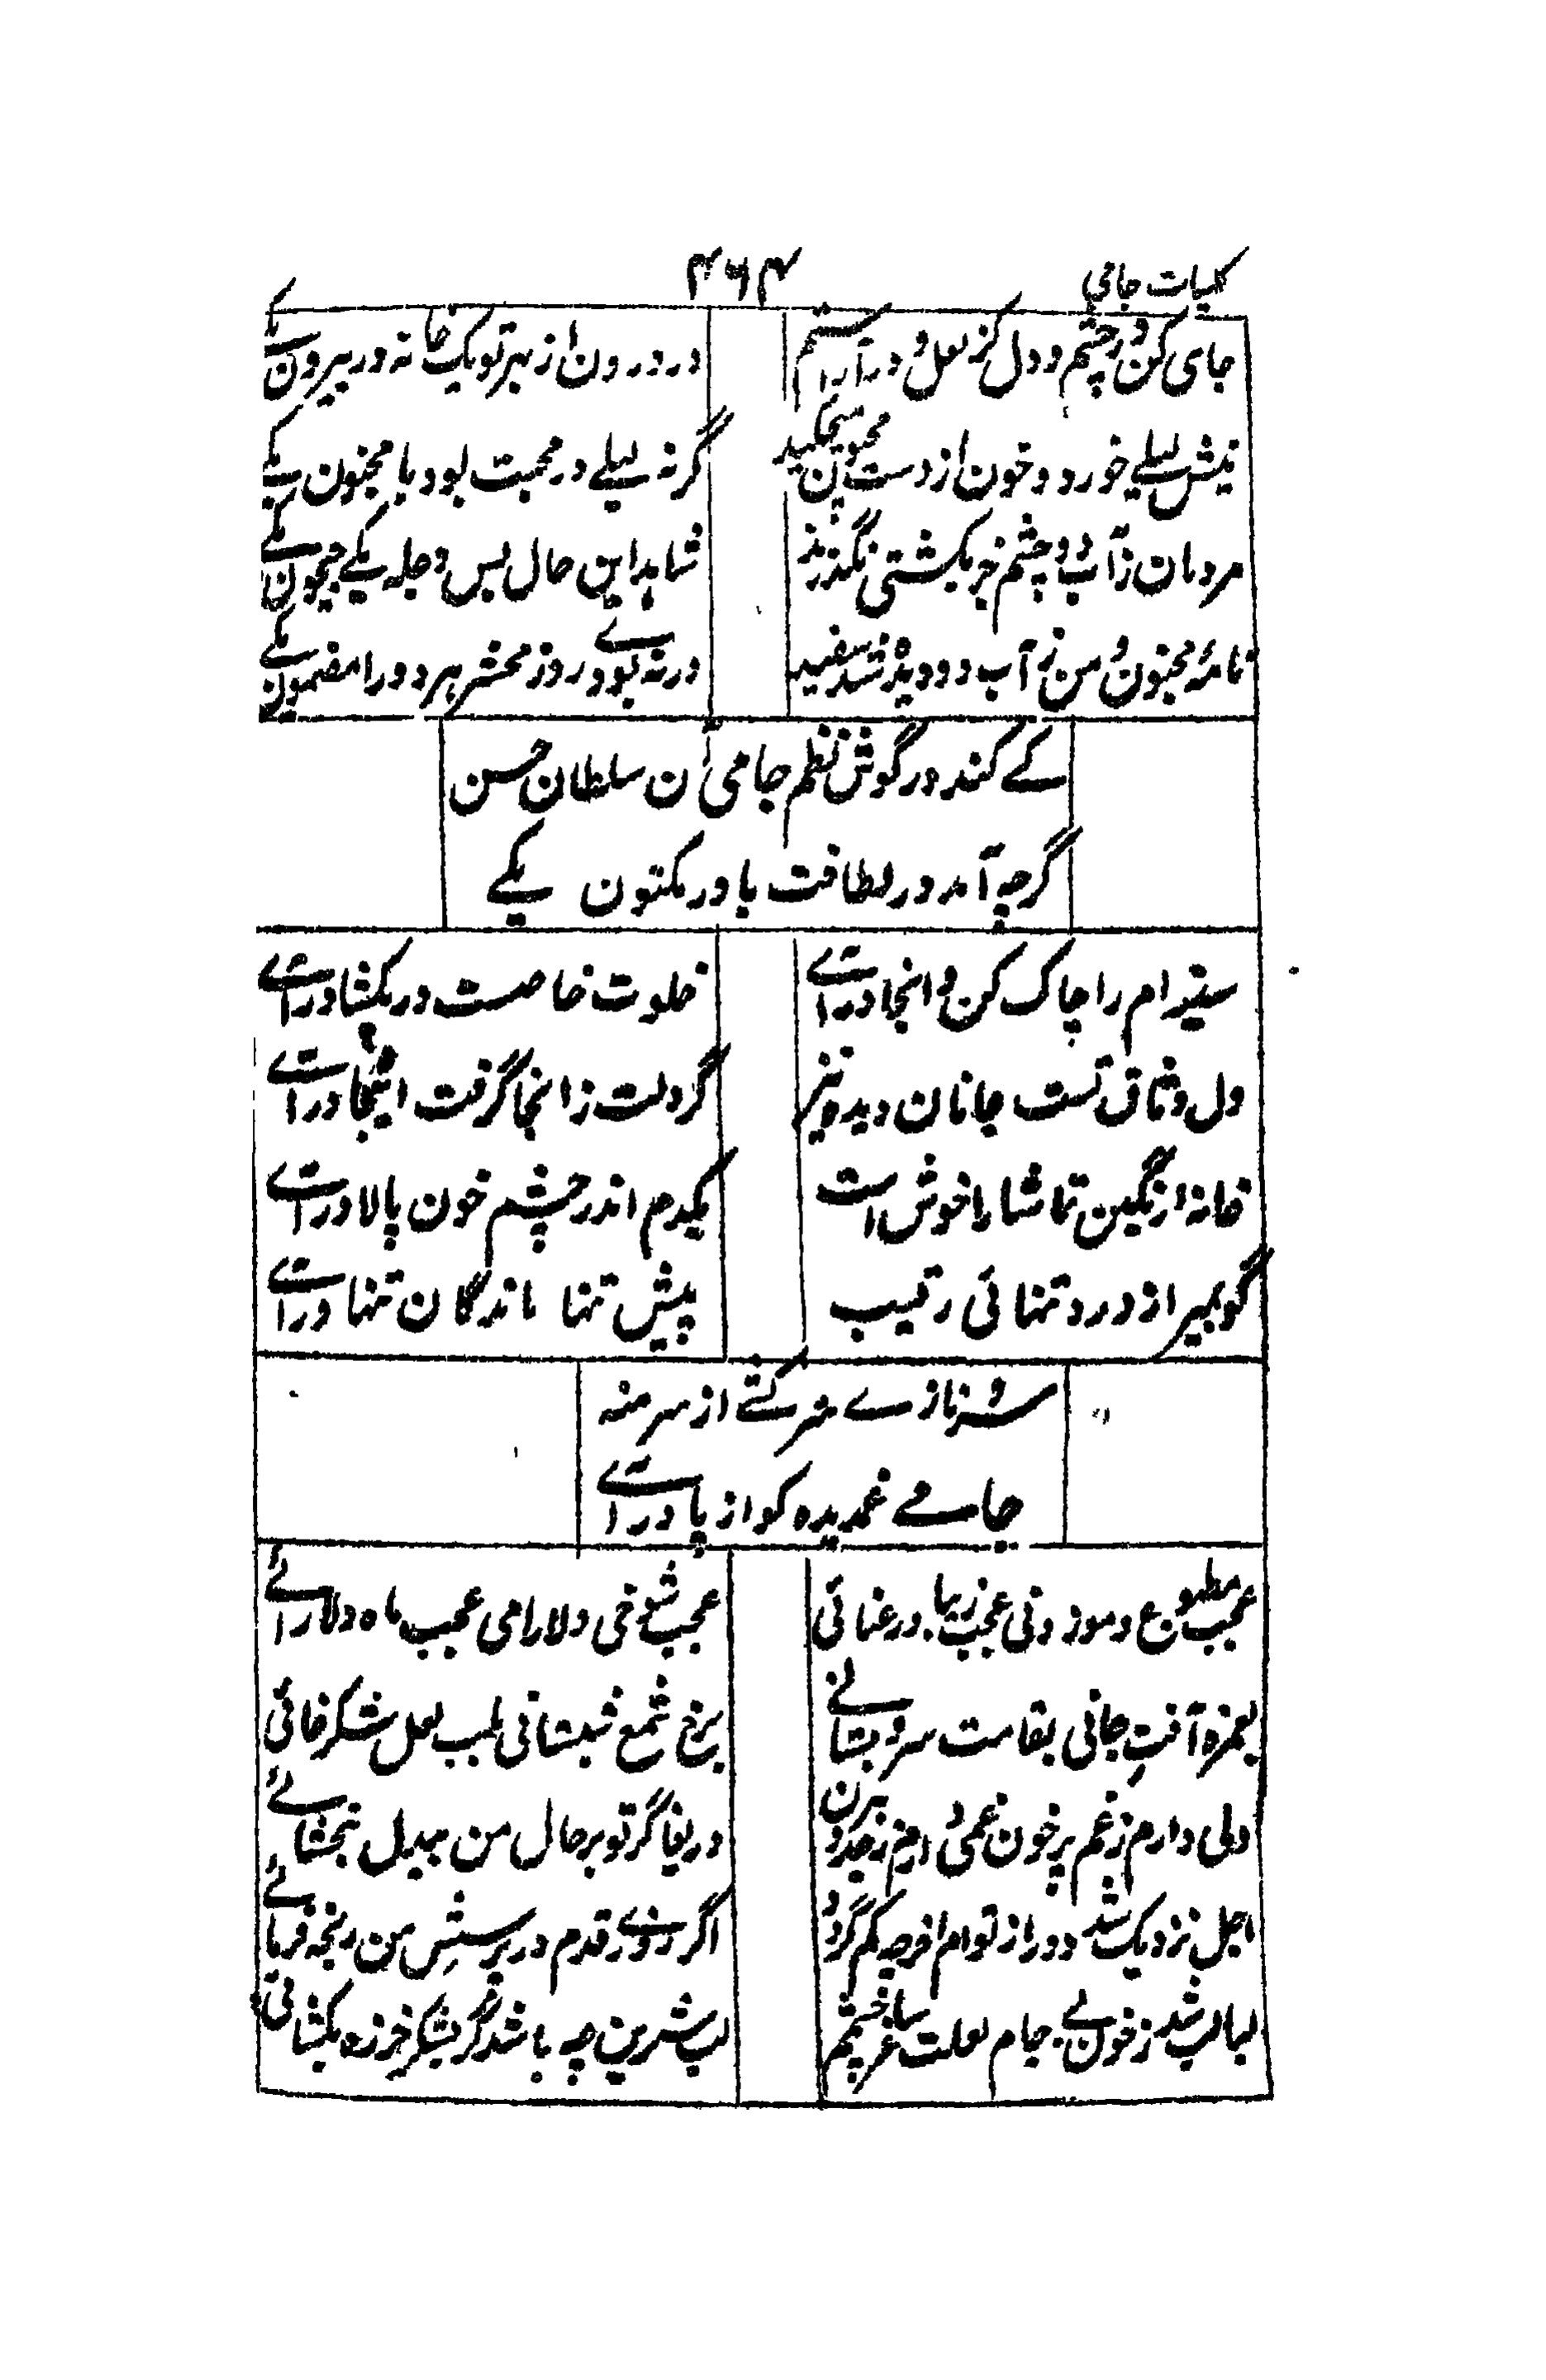 کلیات جامی
۴۶۴
جای کن در چشم و دل کز لعل و در آراستم
در درون از بهر تو یک خانه در بیرون یکے
نیش لیلے خورد و خون از دست مجنون میچکید
گر نه لیلے در محبت بود با مجنون یکے
مردمان ز آب دو چشم جز بکشتی نگذرند
شاهد این حال بس دجله یکے جیحون یکے
نامۀ مجنون و من ز آب دو دیده شد سفید
ورنه بودے روز محشر هر دو را مضمون یکے
کے کند در گوش نظم جامی آن سلطان حسن
گرچه آمد در لطافت با در مکنون یکے
سینه ام را چاک کن و انجا درآے
خلوت خاصست در بکشا درآے
دل وثاق تست جانان دیده نیز
گر دلت زانجا گرفت اینجا درآے
خانه رنگین تماشا را خوش است
یکدم اندر چشم خون پالا درآے
گو بمیر از درد تنهائی رقیب
پیش تنها ماندگان تنها درآے
شد ز نازے سرکشے از سر منه
جامے غمدیده کو از پا درآے
عجب مطبوع و موزونی عجب زیبا و رعنائی
عجب شوخی دلارامی عجب ماه دلارائے
بغمزه آفت جانی بقامت سرو بستانے
برخ شمع شبستانی بلب لعل شکرخائی
دلی دارم ز غم پر خون غمی دارم ز حد بیرون
دریغا گر تو بر حال من بیدل نبخشائے
اجل نزدیک شد دور از توام آخر چه کم گردد
اگر روزے قدم در پرسش من رنجه فرمائے
لبالب شد ز خون بے جام لعلت ساغر چشمم
لب شیرین چه باشد گر بشکر خنده بکشائی